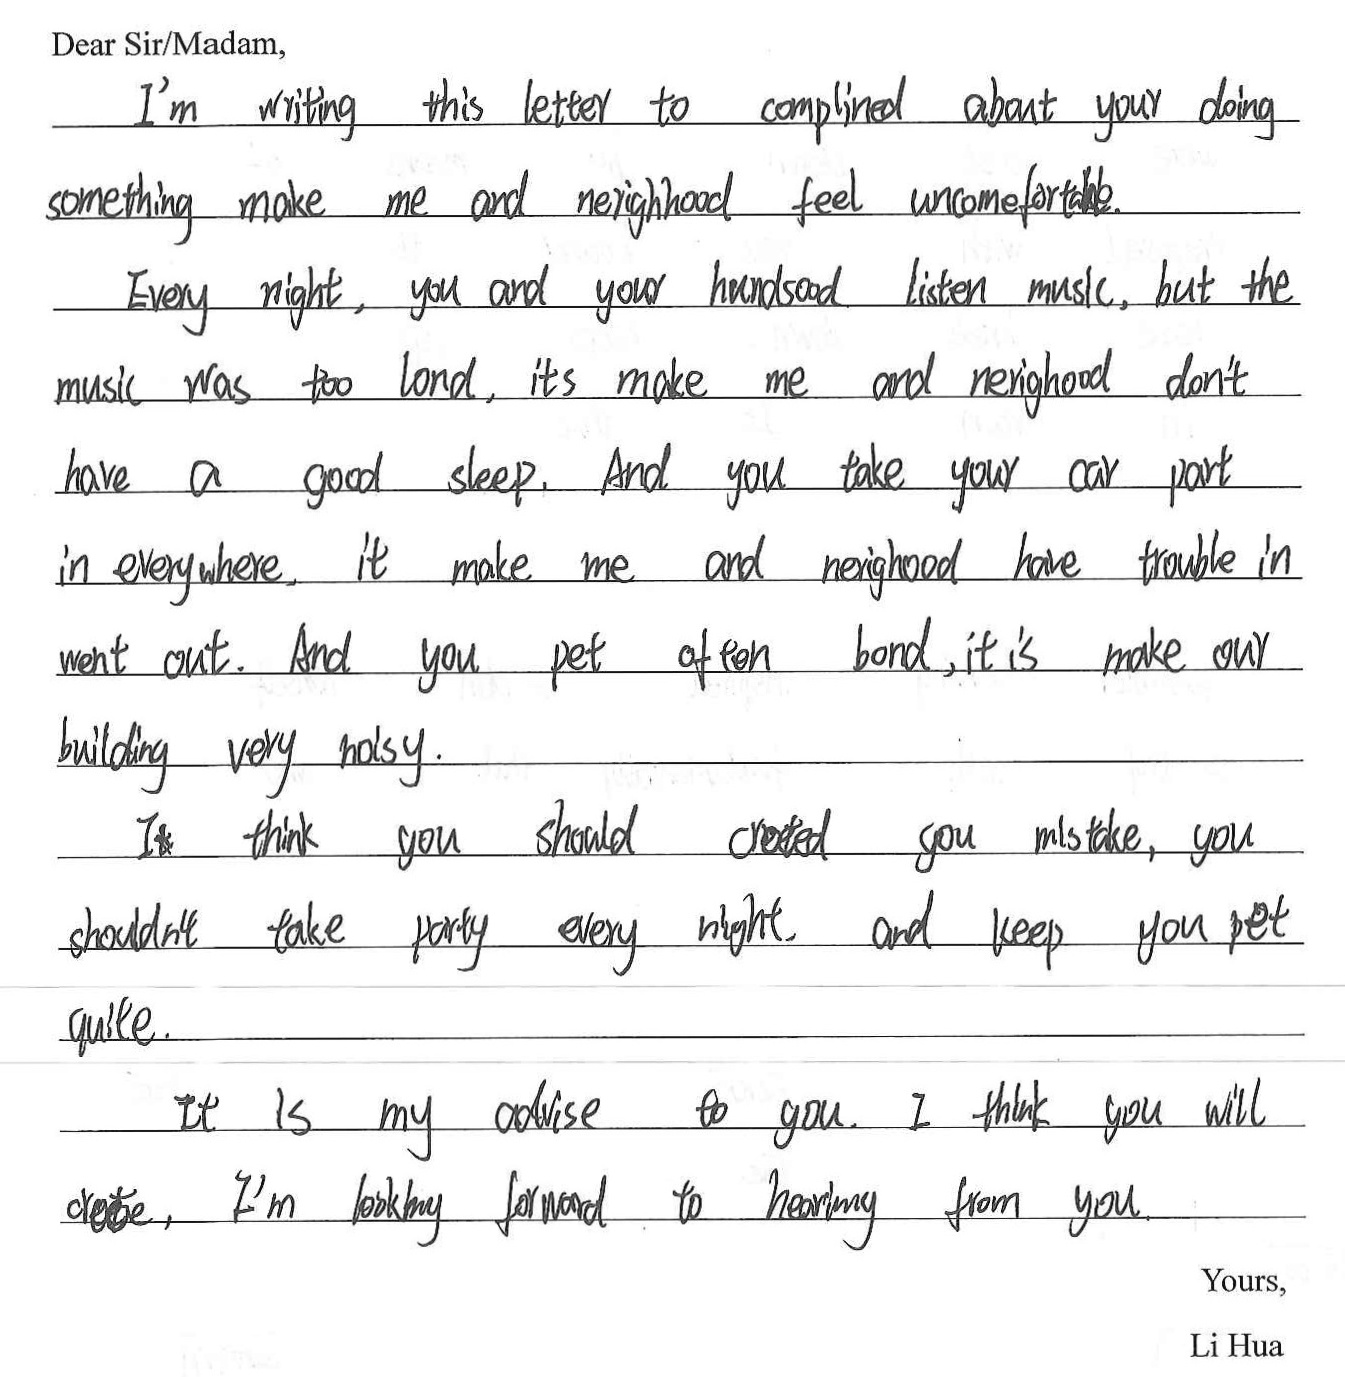 Dear Sir/Madam,
I'm writing this letter to complined about your doing
something make me and nerighhood feel uncomefortable.
Every night, you and your hundsood listen music, but the
music was too lond, its make me and nerighood don't
have a good sleep. And you take your car part
in everywhere, it make me and nerighood have trouble in
went out. And you pet often bond, it is make our
building very noisy.
I think you should created you mistake, you
shouldn't take party every night. and keep you pet
quite.
It is my advise to you. I think you will
create, I'm looking forward to hearing from you.
Yours,
Li Hua